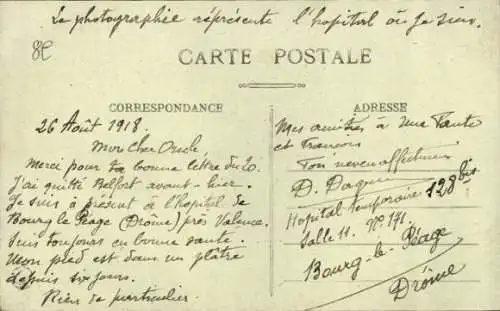 La photographie représente l'hopital où je suis.
8E
CARTE POSTALE
CORRESPONDANCE
ADRESSE
26 Août 1918.
Mon Cher Oncle.
Merci pour ta bonne lettre du 20.
J'ai quitté Belfort avant-hier.
Je suis à présent à l'hopital de
Bourg le Péage (Drôme) près Valence.
Suis toujours en bonne santé.
Mon pied est dans un plâtre
depuis six jours.
Rien de particulier.
Mes amitiés à ma Tante
et François
Ton neveu affectueux
D.
Hopital temporaire 128 bis
Salle 11. N° 171.
Bourg-le-Péage
Drôme